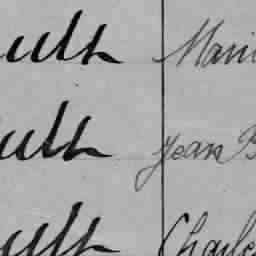 ult Mari
ult Jean B
ult Charle